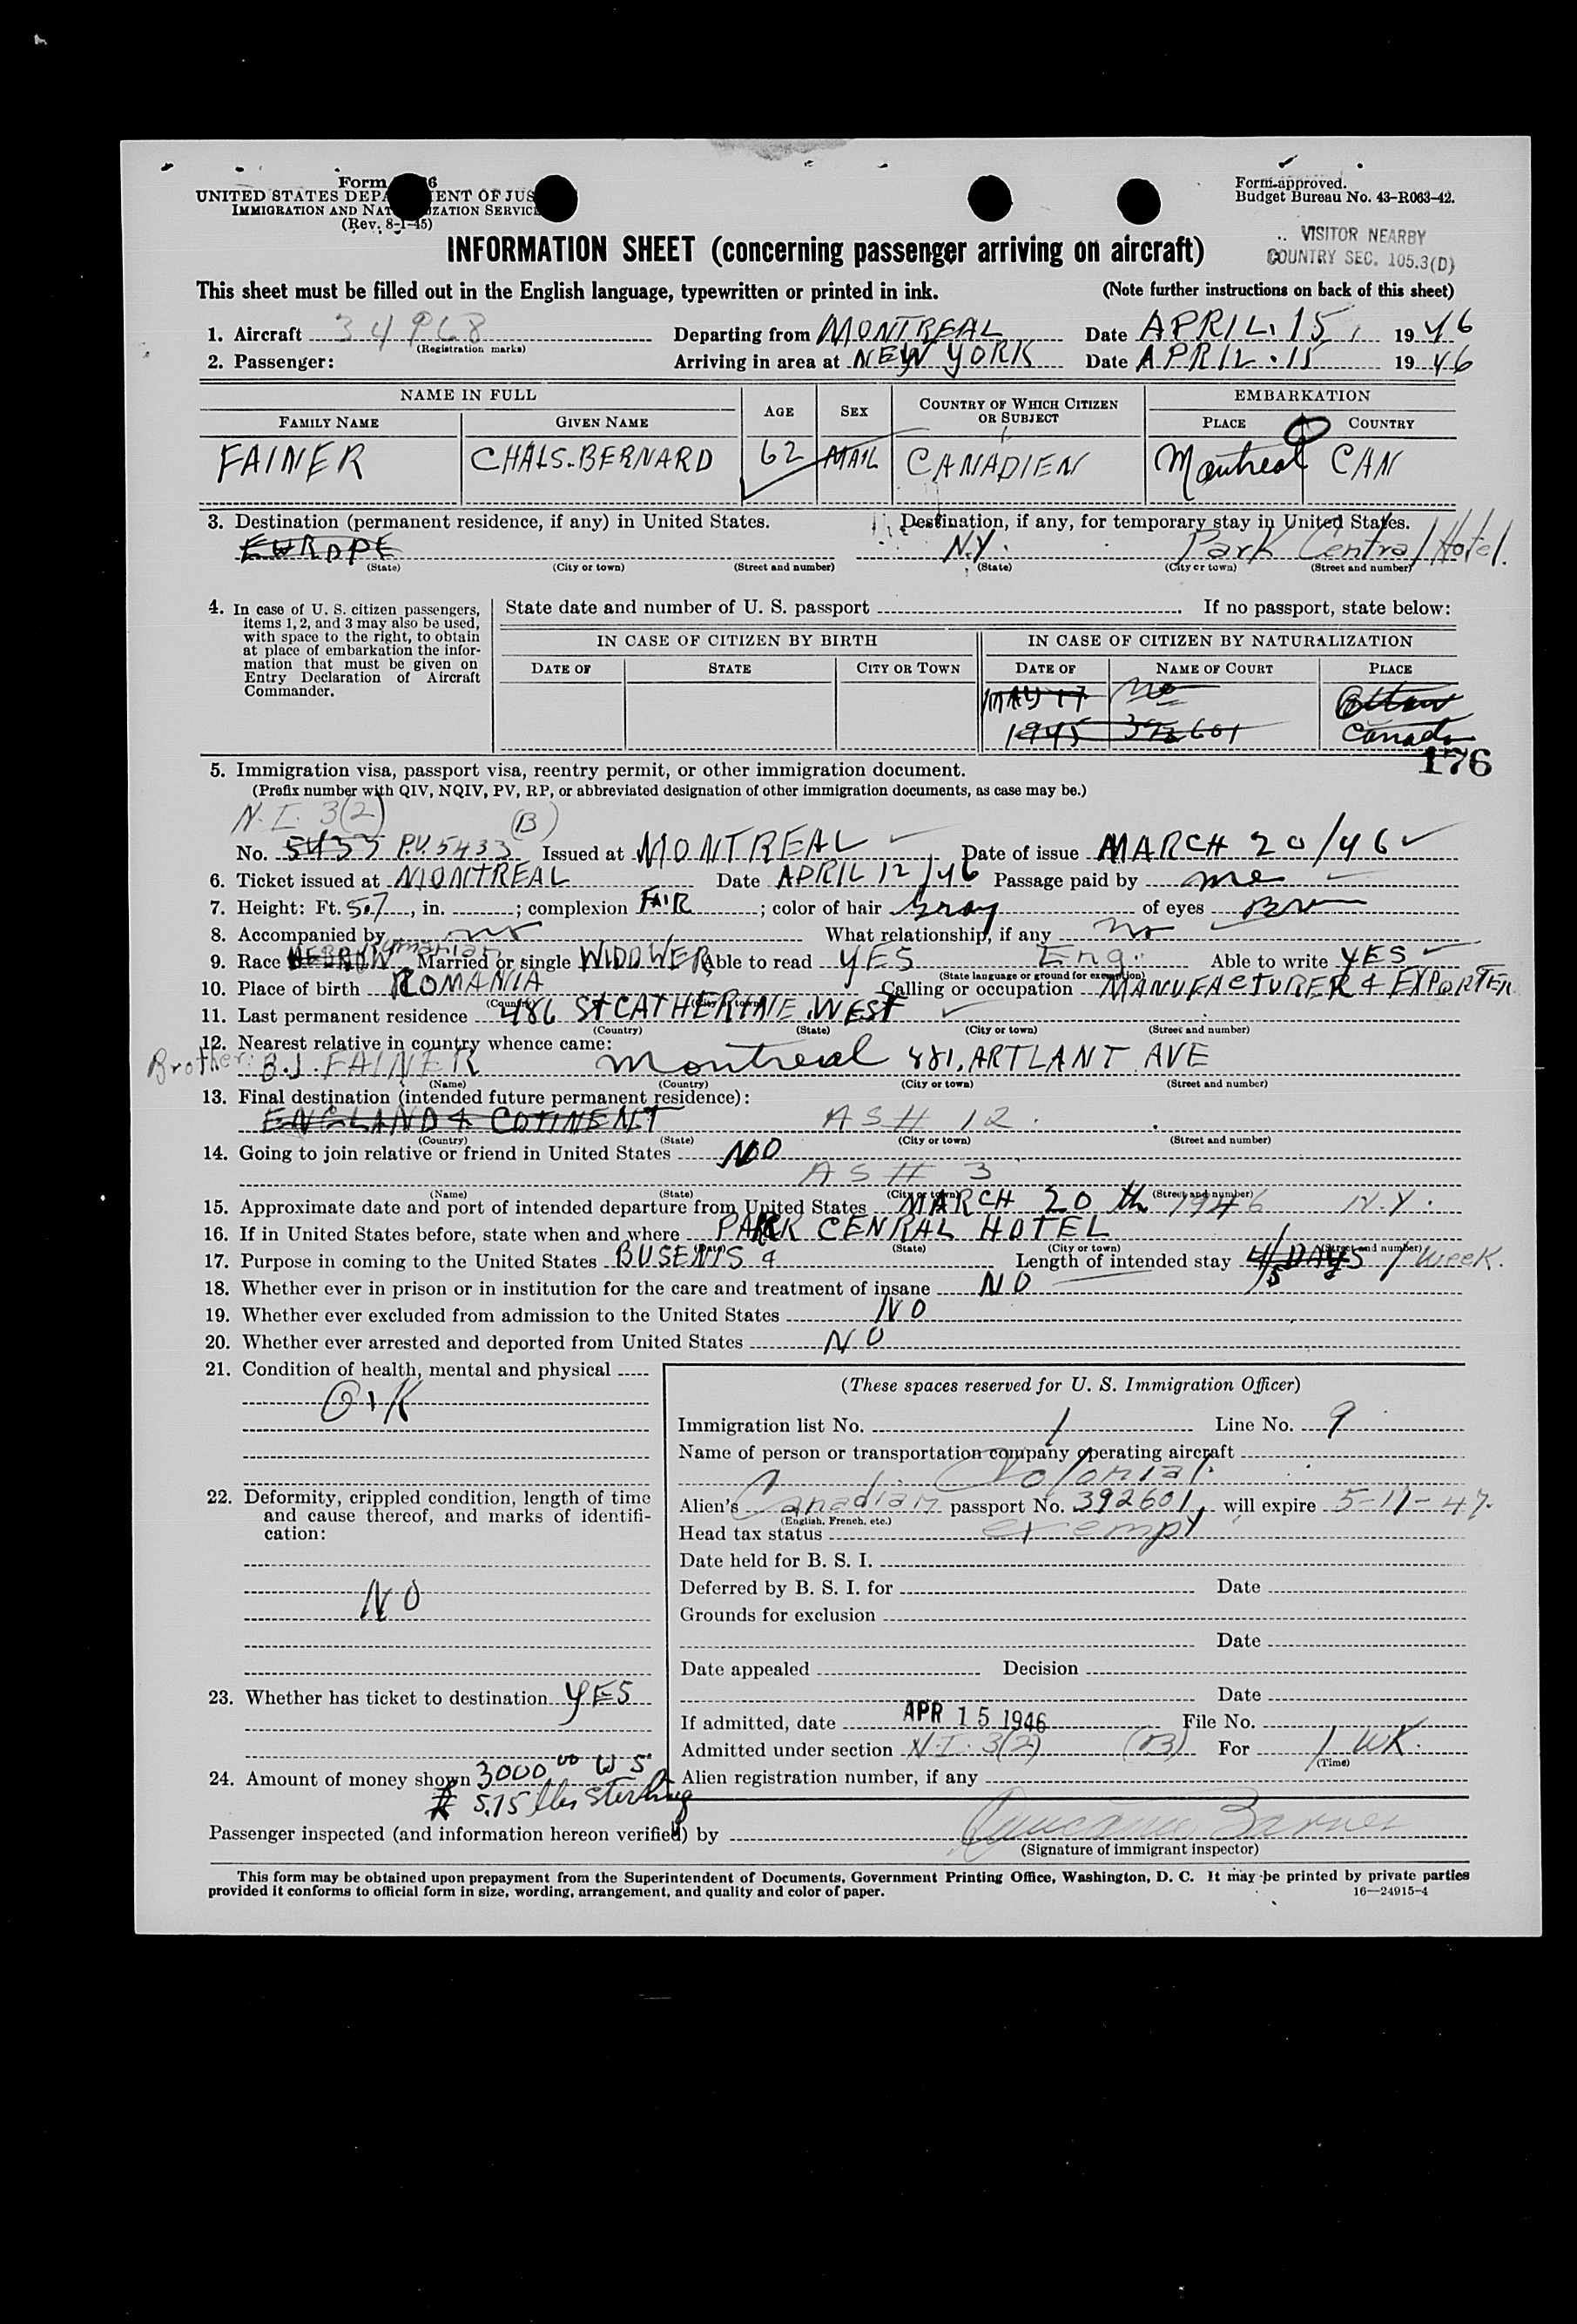 Form 6
UNITED STATES DEPA ENT OF JUS
IMMIGRATION AND NAT ZATION SERVICE
(Rev. 8-1-45)
Form approved.
Budget Bureau No. 43-R063-42.
VISITOR NEARBY
COUNTRY SEC. 105.3(D)
INFORMATION SHEET (concerning passenger arriving on aircraft)
This sheet must be filled out in the English language, typewritten or printed in ink. (Note further instructions on back of this sheet)
1. Aircraft 34968 Departing from MONTREAL Date APRIL. 15, 1946
(Registration marks)
2. Passenger: Arriving in area at NEW YORK Date APRIL. 15 1946
NAME IN FULL AGE SEX COUNTRY OF WHICH CITIZEN OR SUBJECT EMBARKATION
FAMILY NAME GIVEN NAME PLACE COUNTRY
FAINER CHALS. BERNARD 62 MAIL CANADIEN Montreal CAN
3. Destination (permanent residence, if any) in United States. Destination, if any, for temporary stay in United States.
EUROPE N.Y. Park Central Hotel.
(State) (City or town) (Street and number) (State) (City or town) (Street and number)
4. In case of U. S. citizen passengers, items 1, 2, and 3 may also be used, with space to the right, to obtain at place of embarkation the information that must be given on Entry Declaration of Aircraft Commander.
State date and number of U. S. passport . If no passport, state below:
IN CASE OF CITIZEN BY BIRTH IN CASE OF CITIZEN BY NATURALIZATION
DATE OF STATE CITY OR TOWN DATE OF NAME OF COURT PLACE
MAY 17 no Ottaw
1945 392601 Canada
176
5. Immigration visa, passport visa, reentry permit, or other immigration document.
(Prefix number with QIV, NQIV, PV, RP, or abbreviated designation of other immigration documents, as case may be.)
N.I. 3(2) (B)
No. 5433 P.V. 5433 Issued at MONTREAL Date of issue MARCH 20/46
6. Ticket issued at MONTREAL Date APRIL 12/46 Passage paid by me
7. Height: Ft. 5.7, in. ; complexion FAIR ; color of hair Gray of eyes Br
8. Accompanied by no What relationship, if any no
9. Race HEBROW Rumanian Married or single WIDOWER Able to read YES Eng. Able to write YES
(State language or ground for exemption)
10. Place of birth ROMANIA Calling or occupation MANUFACTURER & EXPORTER
(Country) (City or town)
11. Last permanent residence 486 St CATHERINE WEST
(Country) (State) (City or town) (Street and number)
12. Nearest relative in country whence came:
Brother: B.J. FAINER Montreal 881. ARTLANT AVE
(Name) (Country) (City or town) (Street and number)
13. Final destination (intended future permanent residence):
ENGLAND & COTINENT ASH 12.
(Country) (State) (City or town) (Street and number)
14. Going to join relative or friend in United States NO
ASH 3
(Name) (State) (City or town) (Street and number)
15. Approximate date and port of intended departure from United States MARCH 20 th 1946 N.Y.
16. If in United States before, state when and where PARK CENRAL HOTEL
(Date) (State) (City or town) (Street and number)
17. Purpose in coming to the United States BUSENIS & Length of intended stay 4/5 DAYS 1 week.
18. Whether ever in prison or in institution for the care and treatment of insane NO
19. Whether ever excluded from admission to the United States NO
20. Whether ever arrested and deported from United States NO
21. Condition of health, mental and physical
O.K
22. Deformity, crippled condition, length of time and cause thereof, and marks of identification:
NO
23. Whether has ticket to destination YES
24. Amount of money shown 3000 00 US
5.75 lbs Sterling
(These spaces reserved for U. S. Immigration Officer)
Immigration list No. 1 Line No. 9
Name of person or transportation company operating aircraft
Colonial.
Alien's Canadian passport No. 392601, will expire 5-17-47.
(English, French, etc.)
Head tax status exempt
Date held for B. S. I.
Deferred by B. S. I. for Date
Grounds for exclusion
Date
Date appealed Decision
Date
If admitted, date APR 15 1946 File No.
Admitted under section N.I. 3(2) (B) For 1 WK.
(Time)
Alien registration number, if any
Passenger inspected (and information hereon verified) by
(Signature of immigrant inspector)
This form may be obtained upon prepayment from the Superintendent of Documents, Government Printing Office, Washington, D. C. It may be printed by private parties
provided it conforms to official form in size, wording, arrangement, and quality and color of paper.
16—24915-4